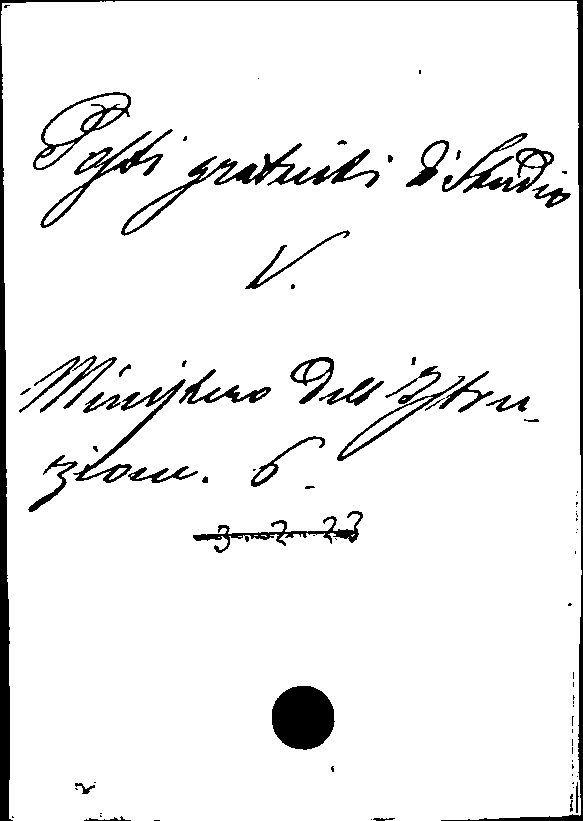 Posti gratuiti di Studio
V.
Ministero dell'Istru-
zione. 6.